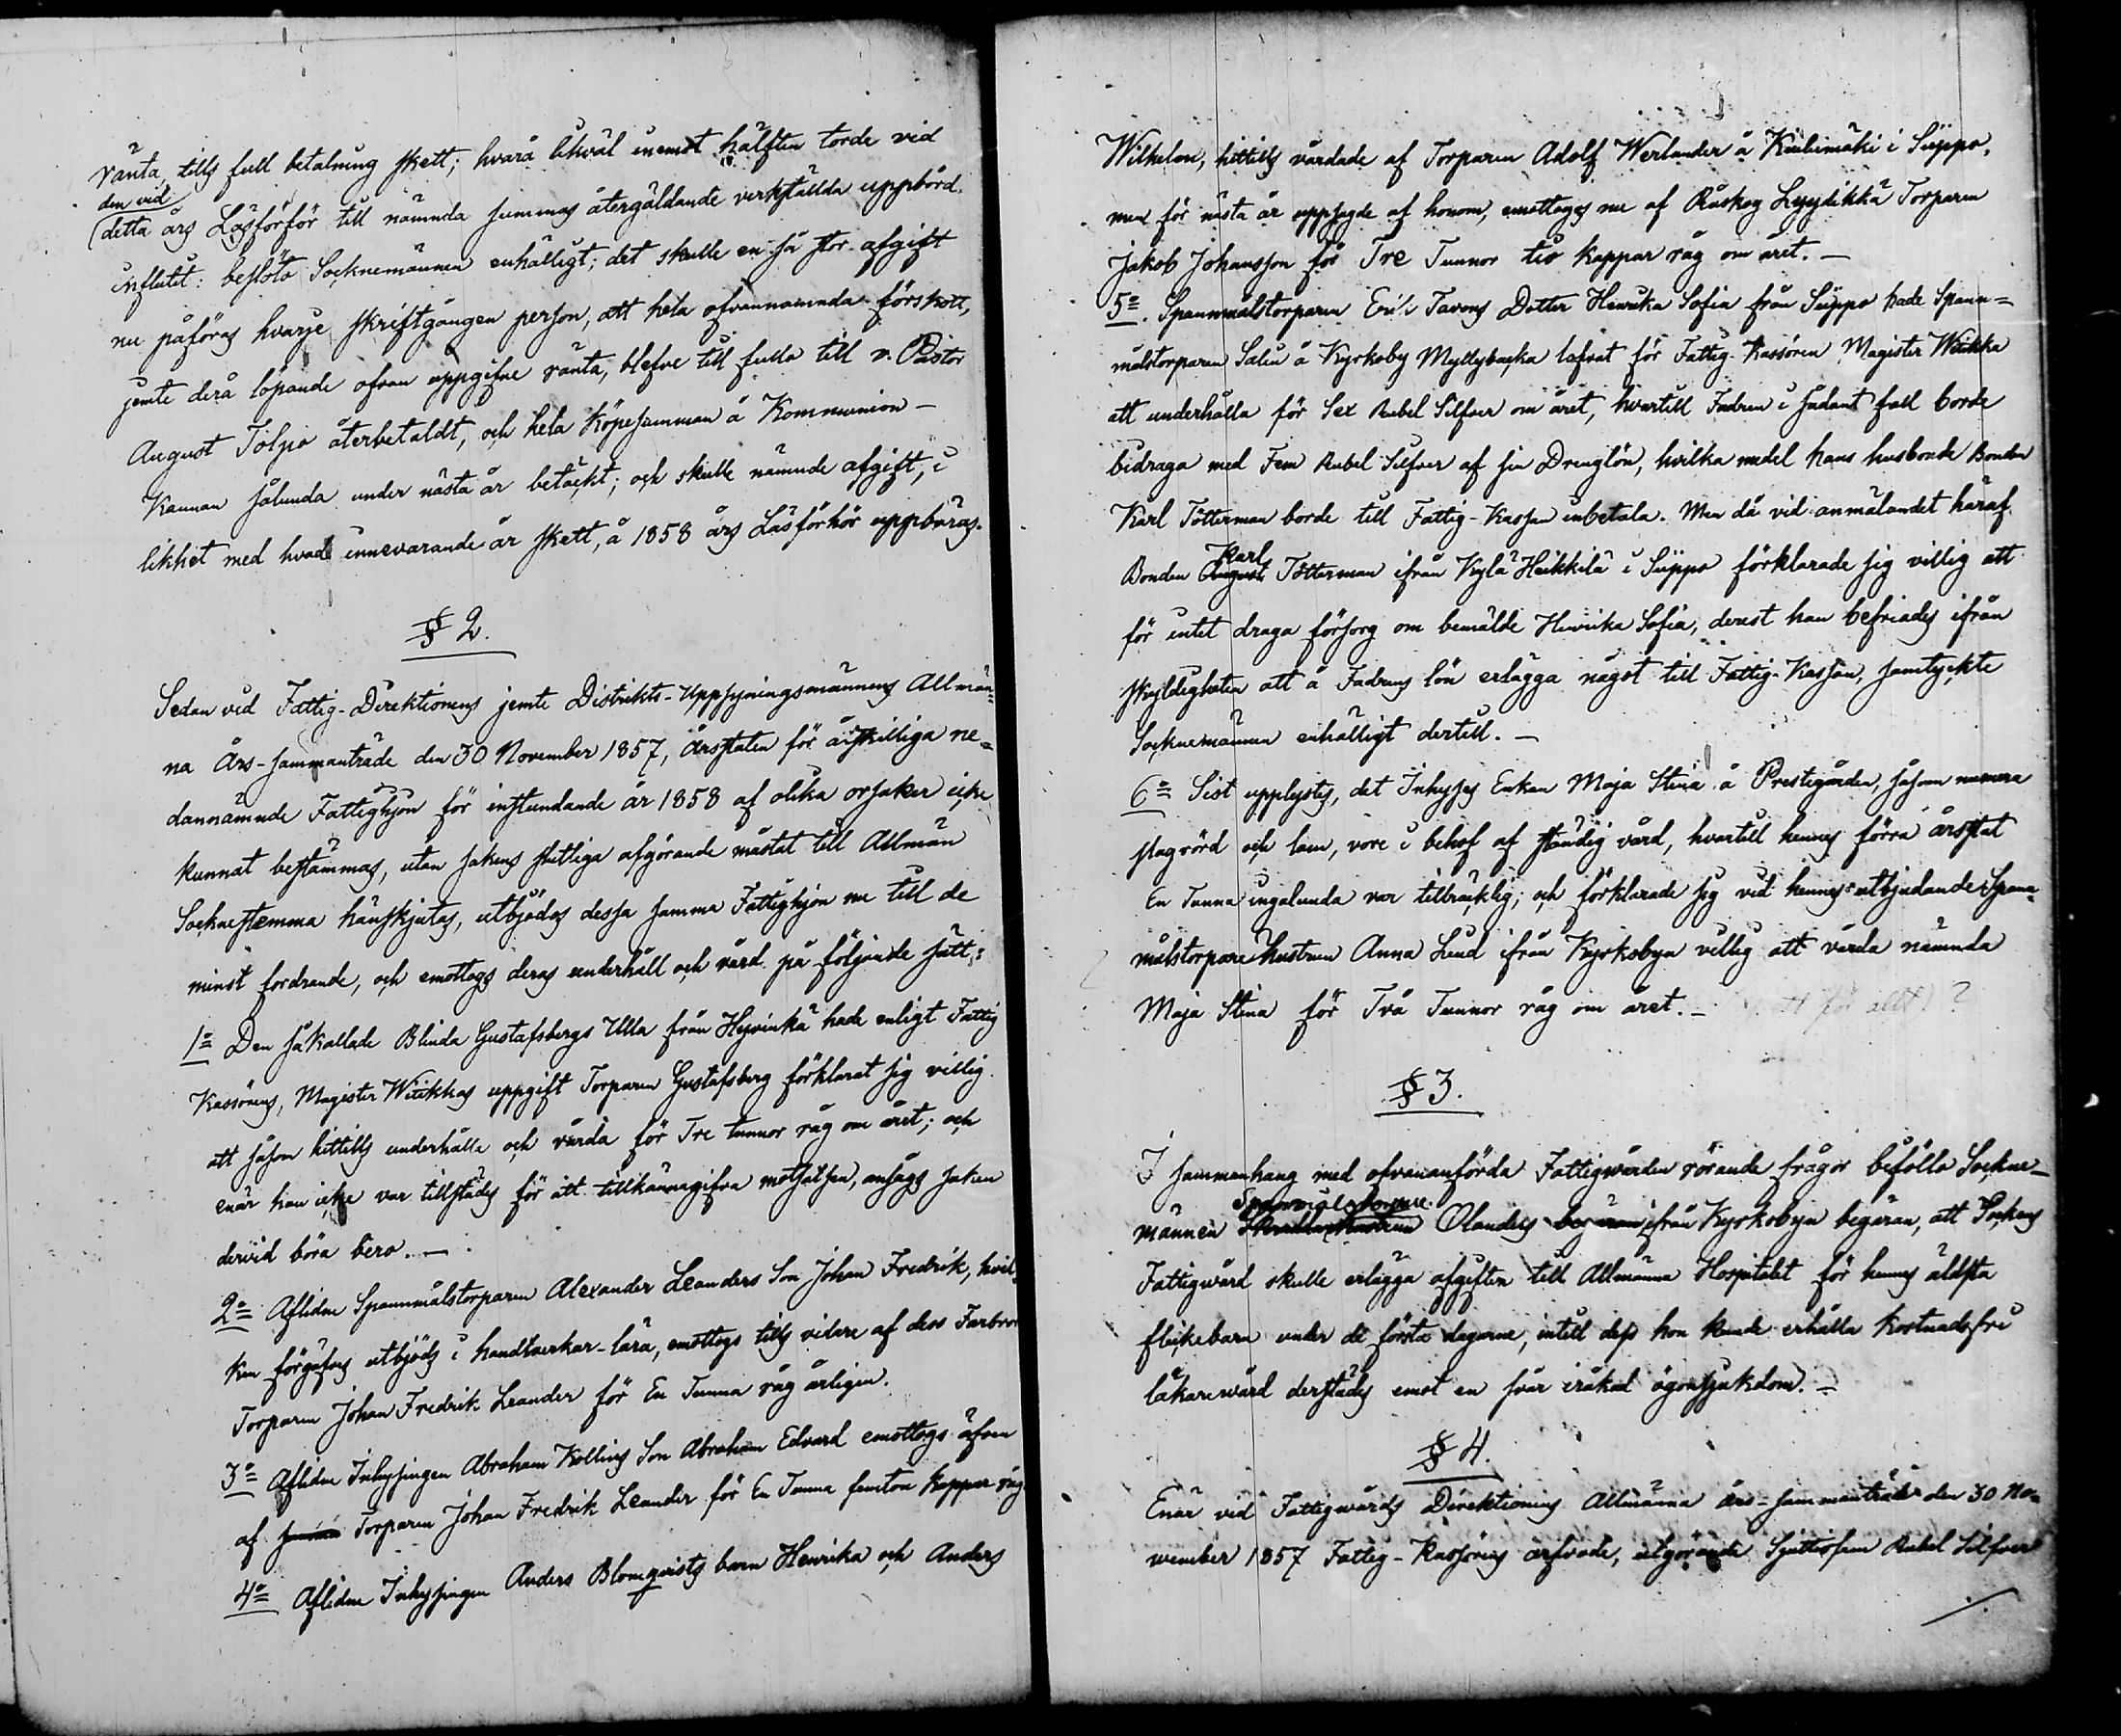 ränta, tills full betalning skett; hvara likväl inemot hälften torde vid
den vid
detta års Läsförför till nämnda summas återgäldande verkställda uppbörd
influtit: beslöto Socknemännen enhälligt; det skulle en så stor afgift
nu påföras hvarje skriftgången person, att hela ofvannämnda förskott,
jemte derå löpande ofvan uppgifne ränta, blefve till fullo till v. Pastor
August Tolpo återbetaldt, och hela köpesumman å Kommunion-
Kannan sålunda under nästa år betäckt; och skulle nämnde afgift, i
likhet med hvad innevarande år skett, å 1858 års Läsförhör uppbäras.
§ 2.
Sedan vid Fattig-Direktionens jemte Distrikts-Uppsyningsmännens Allmän-
na Års-sammanträde den 30 November 1857, årsstaten för åtskilliga ne-
dannämnde Fattighjon för instundande år 1858 af olika orsaker icke
kunnat bestämmas, utan sakens slutliga afgörande måstat till Allmän
Socknestemma hänskjutas, utbjödos dessa samma Fattighjon nu till de
minst fordrande, och emottogs deras underhåll och vård på följande sätt:
1o Den såkallade Blinda Gustafsbergs Ulla från Hyvinkä hade enligt Fattig
Kassörens, Magister Witikkas uppgift Torparen Gustafsberg förklarat sig villig
att såsom hittills underhålla och vårda för Tre tunnor råg om året; och
enär han icke var tillstädes för att tillkännagifva motsatsen, ansågs saken
dervid böra bero.-
2o Aflidne Spannmålstorparen Alexander Leanders Son Johan Fredrik, hvil-
ken förgäfves utbjöds i handtverkar-lära, emottogs tills vidare af dess Farbror
Torparen Johan Fredrik Leander för En Tunna råg årligen.
3o Aflidne Inhysingen Abraham Kellins Son Abraham Edvard emottogs äfven
af Torparen Johan Fredrik Leander för En Tunna femton kappar råg
4o Aflidne Inhysingen Anders Blomqvists barn Henrika och Anders
Wilhelm, hittills vårdade af Torparen Adolf Werlander å Kiulimäki i Suppo,
men för nästa år uppsagde af honom, emottoges nu af Ruskog Lyydikkä Torparen
Jakob Johansson för Tre Tunnor tio kappar råg om året.-
5o. Spannmålstorparen Erik Tavons Dotter Henrika Sofia från Suppo hade Spann-
målstorparen Salin å Kyrkoby Myllybacka lofvat för Fattig-Kassören Magister Witikka
att underhålla för Sex Rubel Silfver om året, hvartill Fadren i sådant fall borde
bidraga med Fem Rubel Silfver af sin Drenglön, hvilka medel hans husbonde Bonden
Karl Tötterman borde till Fattig-Kassan inbetala. Men då vid anmälandet häraf
Karl
Bonden August Tötterman ifrån Kylä Heikkilä i Suppo förklarade sig villig att
för intet draga försorg om bemälde Henrika Sofia, derest han befriades ifrån
skyldigheten att å Fadrens lön erlägga något till Fattig-Kassan, samtyckte
Socknemännen enhälligt dertill.-
6o Sist upplystes, det Inhyses Enkan Maja Stina å Prestegården, såsom numera
slagrörd och lam, vore i behof af ständig vård, hvartill hennes förra årsstat
En Tunna ingalunda var tillräcklig; och förklarade sig vid hennes utbjudande Spann-
målstorpare hustrun Anna Lund ifrån Kyrkobyn villig att vårda nämnda
Maja Stina för Två Tunnor råg om året.- för allt)?
§ 3.
I sammanhang med ofvananförda Fattigvården rörande frågor biföllo Sockne-
Spannmålstorpare
männen Olanders ifrån Kyrkobyn begäran, att Sockens
Fattigvård skulle erlägga afgiften till Allmänna Hospitalet för hennes äldsta
flickebarn under de första dagarne, intill dess hon kunde erhålla kostnadsfri
läkarevård derstädes emot en svår iråkad ögonsjukdom.-
§ 4.
Enär vid Fattigvårds Direktionens Allmänna års-sammanträde den 30 No-
vember 1857 Fattig-Kassörens arfvode, utgörande Sjuttiofem Rubel Silfver